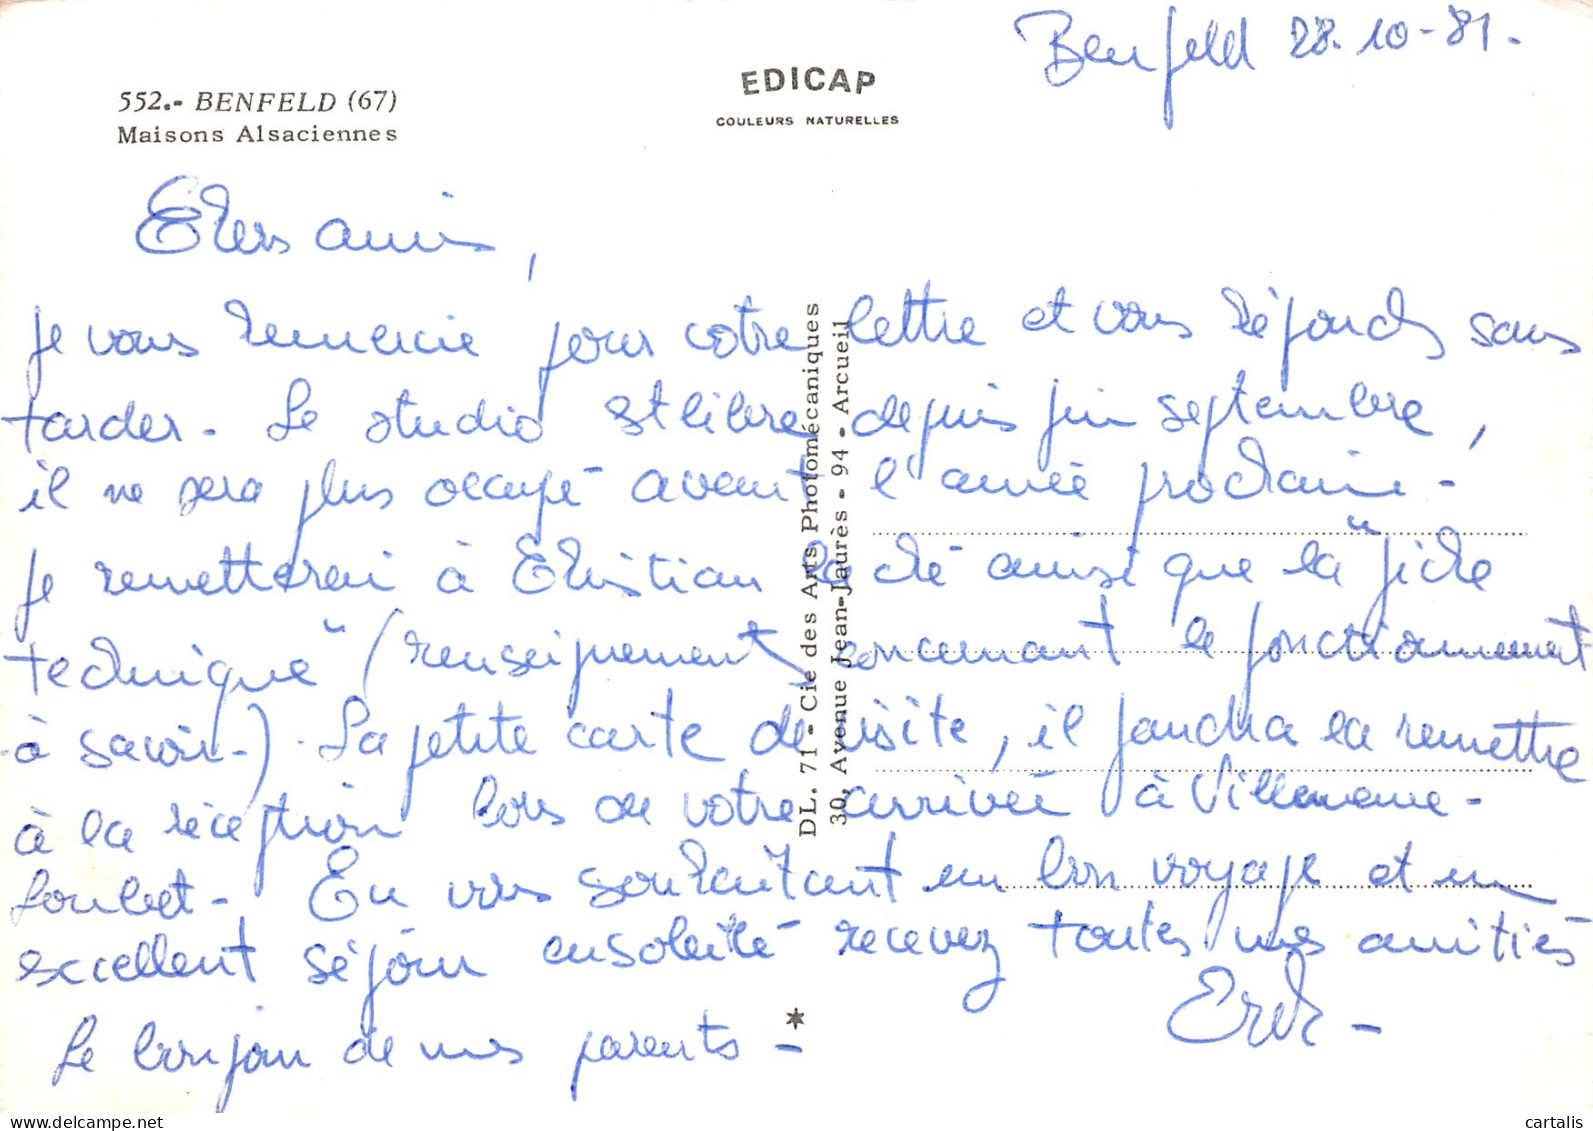 Benfeld 28.10-81.
EDICAP
COULEURS NATURELLES
552.- BENFELD (67)
Maisons Alsaciennes
Chers amis,
je vous remercie pour votre lettre et vous réponds sans
tarder. Le studio est libre depuis fin septembre,
il ne sera plus occupé avant l'année prochaine.
Je remettrai à Christian la clé ainsi que la "fiche
technique" (renseignements concernant le fonctionnement
à savoir.). La petite carte de visite, il faudra la remettre
à la réception lors de votre arrivée à Villeneuve-
Loubet. En vous souhaitant un bon voyage et un
excellent séjour ensoleillé recevez toutes mes amitiés
Le bonjour de mes parents -
DL. 71 - Cie des Arts Photomécaniques
30, Avenue Jean-Jaurès - 94 - Arcueil
delcampe.net
cartalis